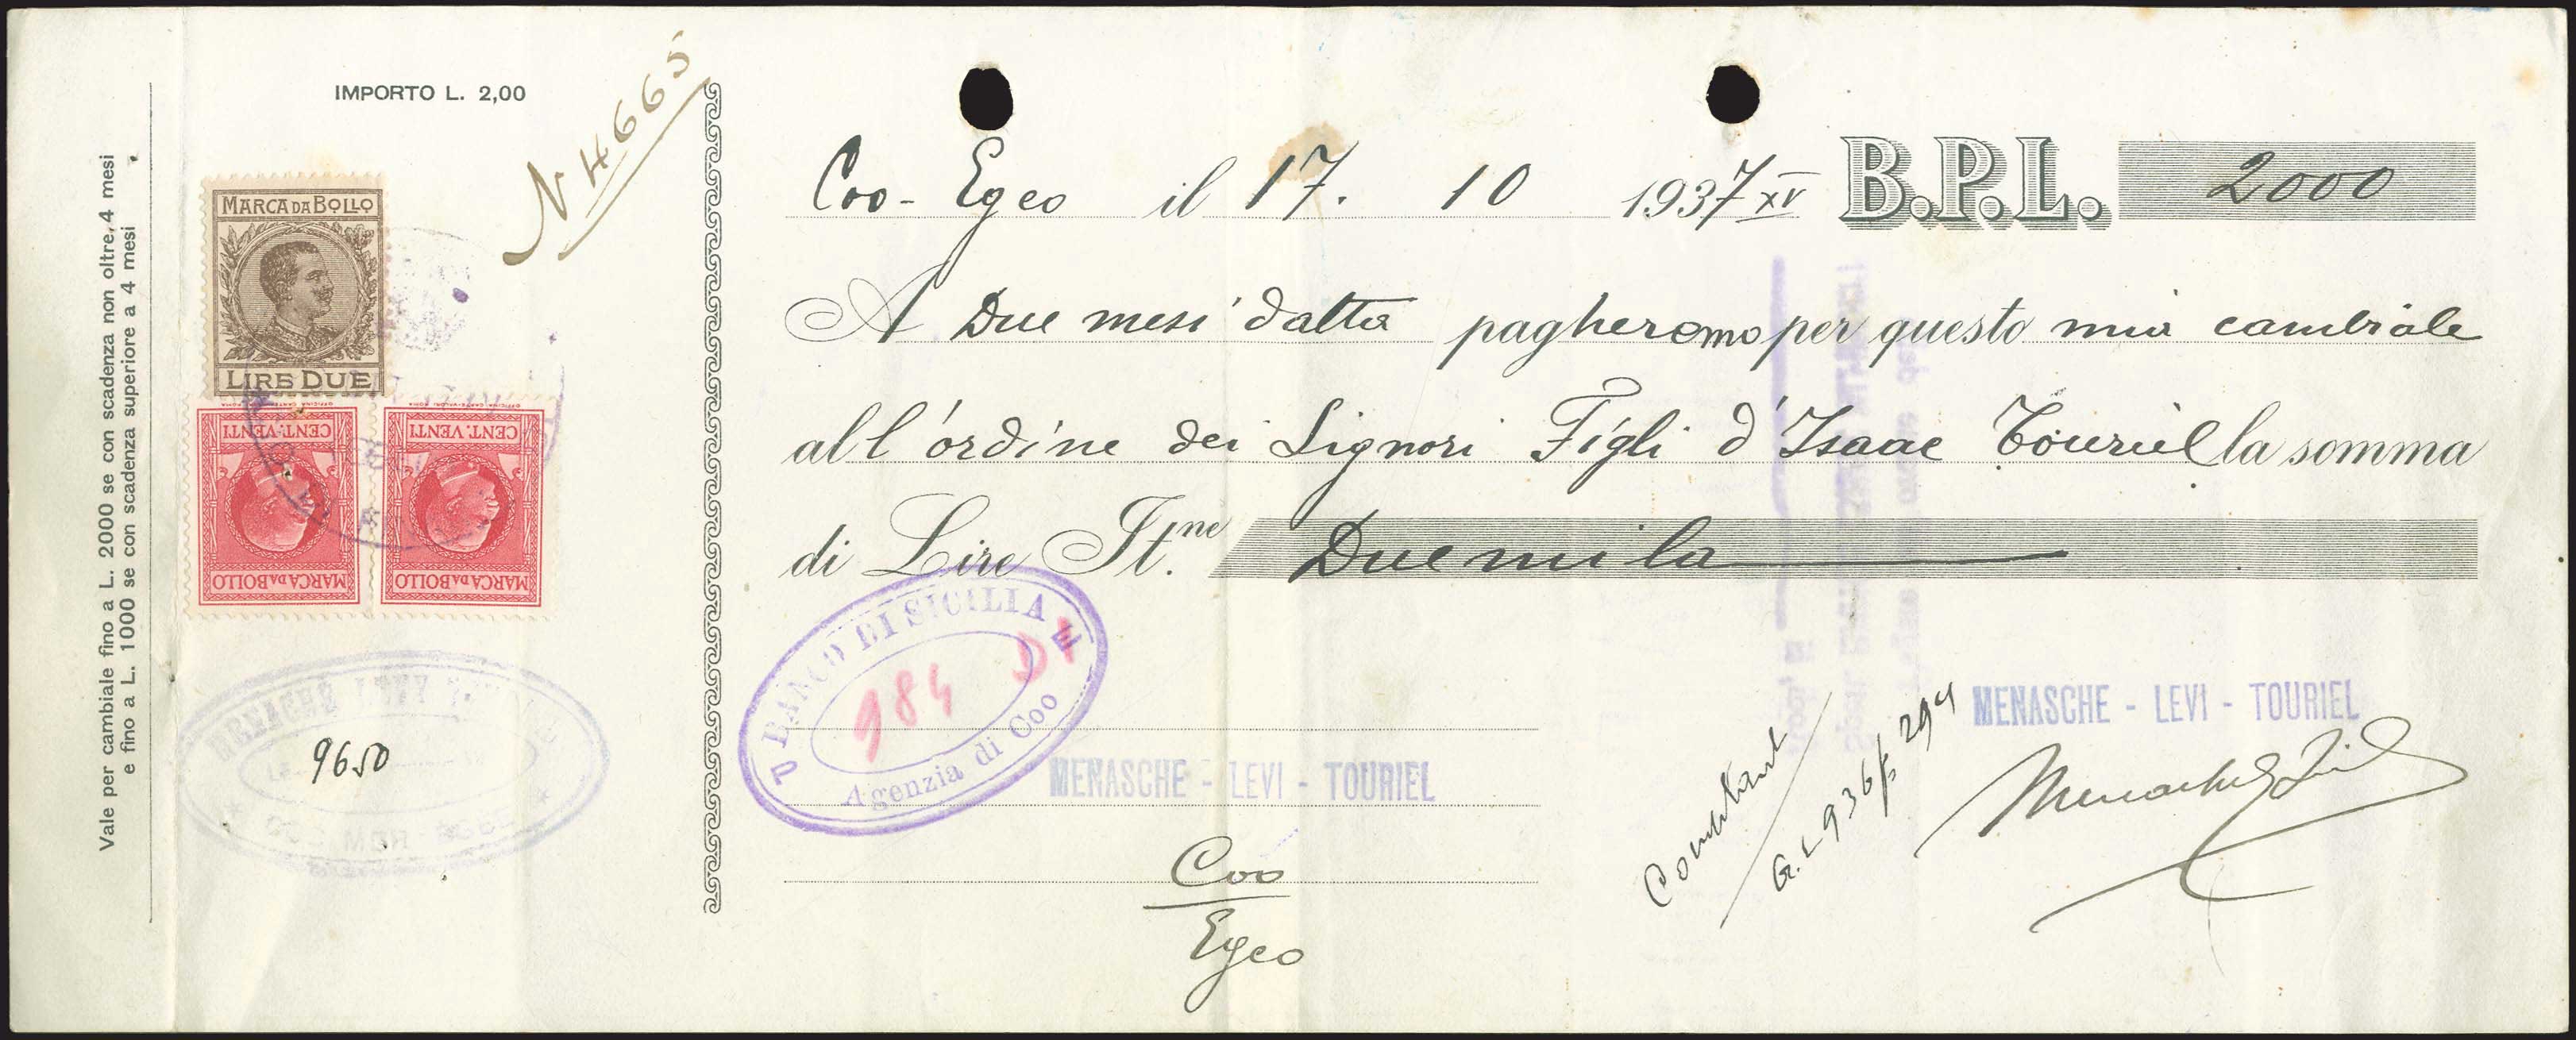 Vale per cambiale fino a L. 2000 se con scadenza non oltre, 4 mesi
e fino a L. 1000 se con scadenza superiore a 4 mesi
IMPORTO L. 2,00
N 4665
MARCA DA BOLLO
LIRE DUE
CENT. VENTI
MARCA DA BOLLO
CENT. VENTI
MARCA DA BOLLO
9650
Coo - Egeo il 17. 10 1937 XV B.P.L. 2000
A Due mesi datta pagheremo per questo mia cambiale
all'ordine dei Signori Figli d'Isaac Touriel la somma
di Lire It.ne Duemila
BANCO DI SICILIA
984 D1
Agenzia di Coo
MENASCHE - LEVI - TOURIEL
Coo
Egeo
G.L 936 f. 294
MENASCHE - LEVI - TOURIEL